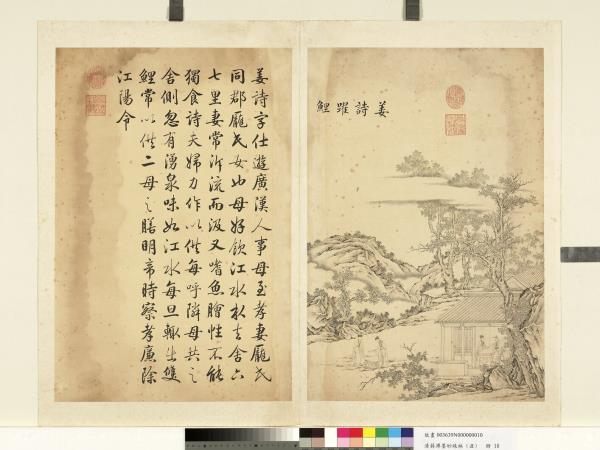 姜詩躍鯉
姜詩字仕遊廣漢人事母至孝妻龐氏
同郡龐氏女也母好飲江水水去舍六
七里妻常泝流而汲又嗜魚膾性不能
獨食詩夫婦力作以供每呼隣母共之
舍側忽有湧泉味如江水每旦輒出雙
鯉常以供二母之膳明帝時察孝廉除
江陽令
故畫 003639N000000010
墨妙珠林 冊 10